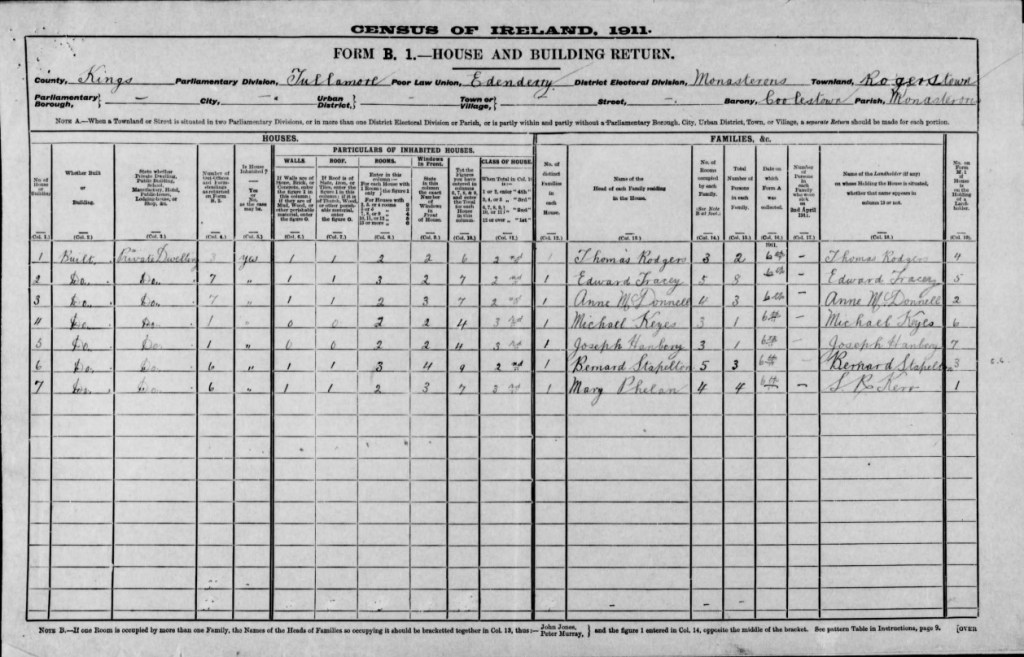 CENSUS OF IRELAND, 1911.
FORM B. 1.—HOUSE AND BUILDING RETURN.
County, Kings Parliamentary Division, Tullamore Poor Law Union, Edenderry District Electoral Division, Monasteroris Townland, Rogerstown
Parliamentary Borough, — City, — Urban District, — Town or Village, — Street, — Barony, Coolestown Parish, Monasteroris
NOTE A.—When a Townland or Street is situated in two Parliamentary Divisions, or in more than one District Electoral Division or Parish, or is partly within and partly without a Parliamentary Borough, City, Urban District, Town, or Village, a separate Return should be made for each portion.
HOUSES. FAMILIES, &c.
PARTICULARS OF INHABITED HOUSES.
WALLS ROOF. ROOMS. Windows in Front. CLASS OF HOUSE.
No. of House or Building Whether Built or Building. State whether Private Dwelling, Public Building, School, Manufactory, Hotel, Public-house, Lodging-house, or Shop, &c. Number of Out-Offices and Farm-steadings as returned on Form B. 2. Is House Inhabited? Yes or No, as the case may be. No. of distinct Families in each House. Name of the Head of each Family residing in the House. No. of Rooms occupied by each Family. (See Note B at foot.) Total Number of Persons in each Family. Date on which Form A was collected. Number of Persons in each Family who were sick on 2nd April 1911. Name of the Landholder (if any) on whose Holding the House is situated, whether that name appears in column 13 or not. No. on Form M. 1 if House is on the Holding of a Landholder.
(Col. 1.) (Col. 2.) (Col. 3.) (Col. 4.) (Col. 5.) (Col. 6.) (Col. 7.) (Col. 8.) (Col. 9.) (Col. 10.) (Col. 11.) (Col. 12.) (Col. 13.) (Col. 14.) (Col. 15.) (Col. 16.) (Col. 17.) (Col. 18.) (Col. 19.)
1911.
1 Built Private Dwelling 3 Yes 1 1 2 2 6 2nd 1 Thomas Rodgers 3 2 6th — Thomas Rodgers 4
2 Do. Do. 7 " 1 1 3 2 7 2nd 1 Edward Tracey 5 8 6th — Edward Tracey 5
3 Do. Do. 7 " 1 1 2 3 7 2nd 1 Anne McDonnell 4 3 6th — Anne McDonnell 2
4 Do. Do. 1 " 0 0 2 2 4 3rd 1 Michael Keyes 3 1 6th — Michael Keyes 6
5 Do. Do. 1 " 0 0 2 2 4 3rd 1 Joseph Hanbery 3 1 6th — Joseph Hanbery 7
6 Do. Do. 6 " 1 1 3 4 9 2nd 1 Bernard Stapelton 5 3 6th — Bernard Stapelton 3
7 Do. Do. 6 " 1 1 2 3 7 1 Mary Phelan 4 4 6th — Kerr 1
NOTE B.—If one Room is occupied by more than one Family, the Names of the Heads of Families so occupying it should be bracketted together in Col. 13, thus:— John Jones, Peter Murray, } and the figure 1 entered in Col. 14, opposite the middle of the bracket. See pattern Table in Instructions, page 9. [OVER